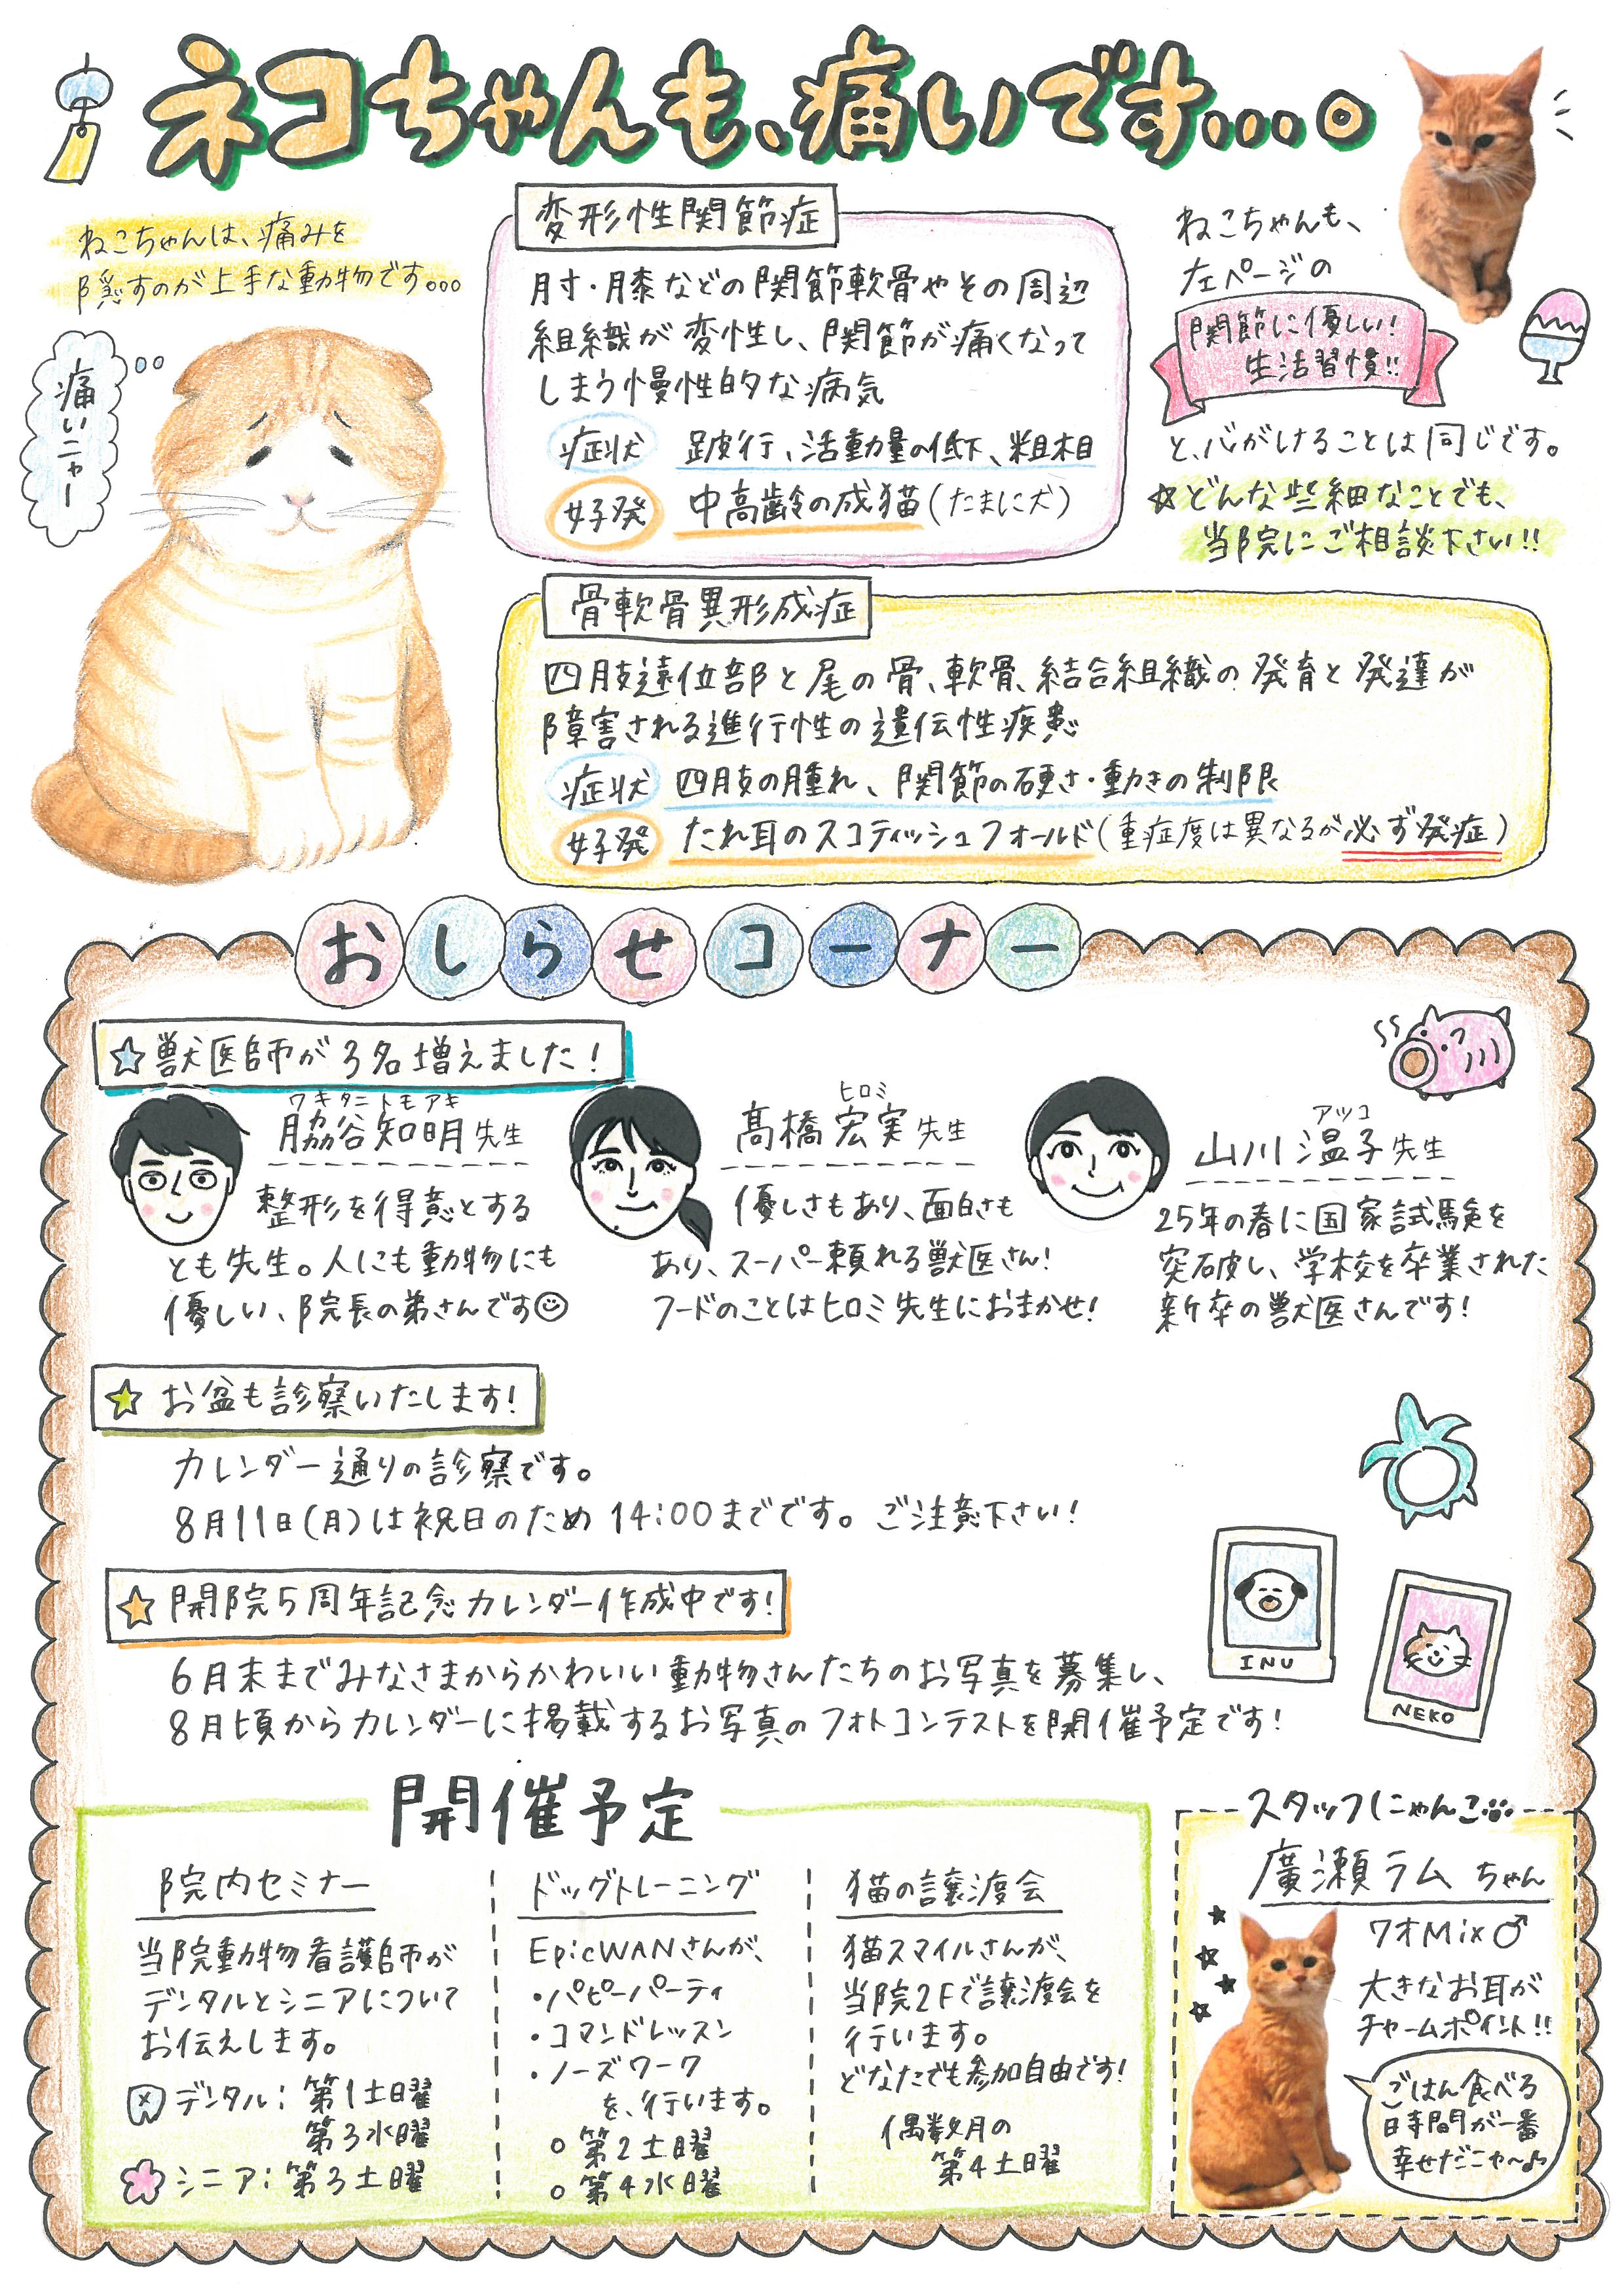 ネコちゃんも、痛いです...。
ねこちゃんは、痛みを
隠すのが上手な動物です。。。
痛いニャー
変形性関節症
肘・膝などの関節軟骨やその周辺
組織が変性し、関節が痛くなって
しまう慢性的な病気
症状 跛行、活動量の低下、粗相
好発 中高齢の成猫(たまに犬)
ねこちゃんも、
左ページの
関節に優しい!
生活習慣!!
と、心がけることは同じです。
☆どんな些細なことでも、
当院にご相談下さい!!
骨軟骨異形成症
四肢遠位部と尾の骨、軟骨、結合組織の発育と発達が
障害される進行性の遺伝性疾患
症状 四肢の腫れ、関節の硬さ・動きの制限
好発 たれ耳のスコティッシュフォールド(重症度は異なるが必ず発症)
おしらせコーナー
☆獣医師が3名増えました!
ワキタニトモアキ
脇谷知明先生
整形を得意とする
とも先生。人にも動物にも
優しい、院長の弟さんです
ヒロミ
髙橋宏実先生
優しさもあり、面白さも
あり、スーパー頼れる獣医さん!
フードのことはヒロミ先生におまかせ!
アツコ
山川温子先生
25年の春に国家試験を
突破し、学校を卒業された
新卒の獣医さんです!
☆お盆も診察いたします!
カレンダー通りの診察です。
8月11日(月)は祝日のため14:00までです。ご注意下さい!
☆開院5周年記念カレンダー作成中です!
6月末までみなさまからかわいい動物さんたちのお写真を募集し、
8月頃からカレンダーに掲載するお写真のフォトコンテストを開催予定です!
INU
NEKO
開催予定
院内セミナー
当院動物看護師が
デンタルとシニアについて
お伝えします。
デンタル:第1土曜
第3水曜
シニア:第3土曜
ドッグトレーニング
EpicWANさんが、
・パピーパーティ
・コマンドレッスン
・ノーズワーク
を、行います。
○第2土曜
○第4水曜
猫の譲渡会
猫スマイルさんが、
当院2Fで譲渡会を
行います。
どなたでも参加自由です!
偶数月の
第4土曜
スタッフにゃんこ
廣瀬ラムちゃん
7才Mix♂
大きなお耳が
チャームポイント!!
ごはん食べる
時間が一番
幸せだニャ〜♪